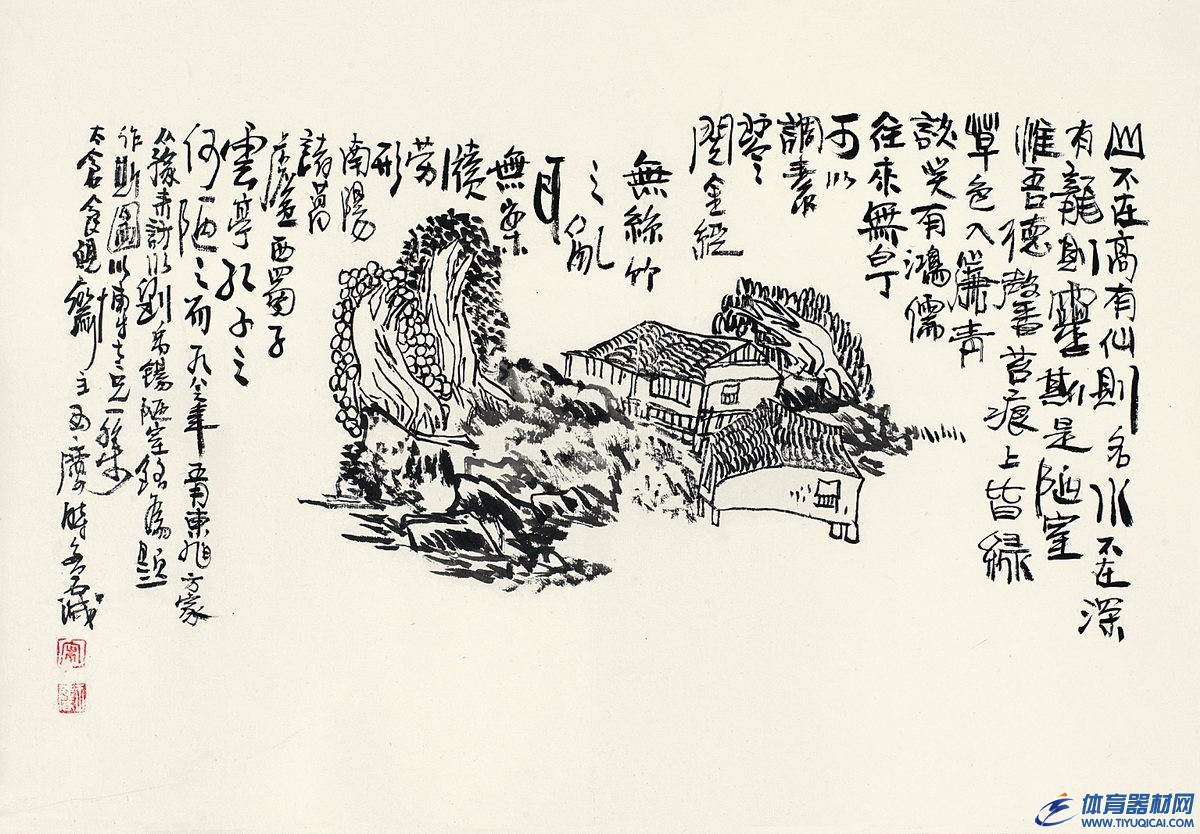 山不在高有仙則名水不在深
有龍則靈斯是陋室
惟吾德馨苔痕上皆緑
草色入簾青
談笑有鴻儒
往來無白丁
可以
調素
琴
閱金經
無絲竹
之亂
耳
無案
牘
勞
形
南陽
諸葛
廬 西蜀子
雲亭 孔子之
何陋之有 一九八三年 東旭方家
來訪以劉禹錫陋室銘為題
作斯圖以
太倉 齋主
体育器材网
WWW.TIYUQICAI.COM